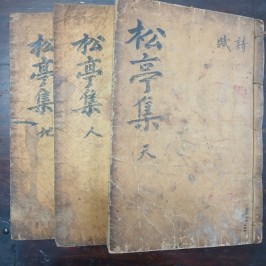 松亭集 天
詩賦
松亭集 人
松亭集 地